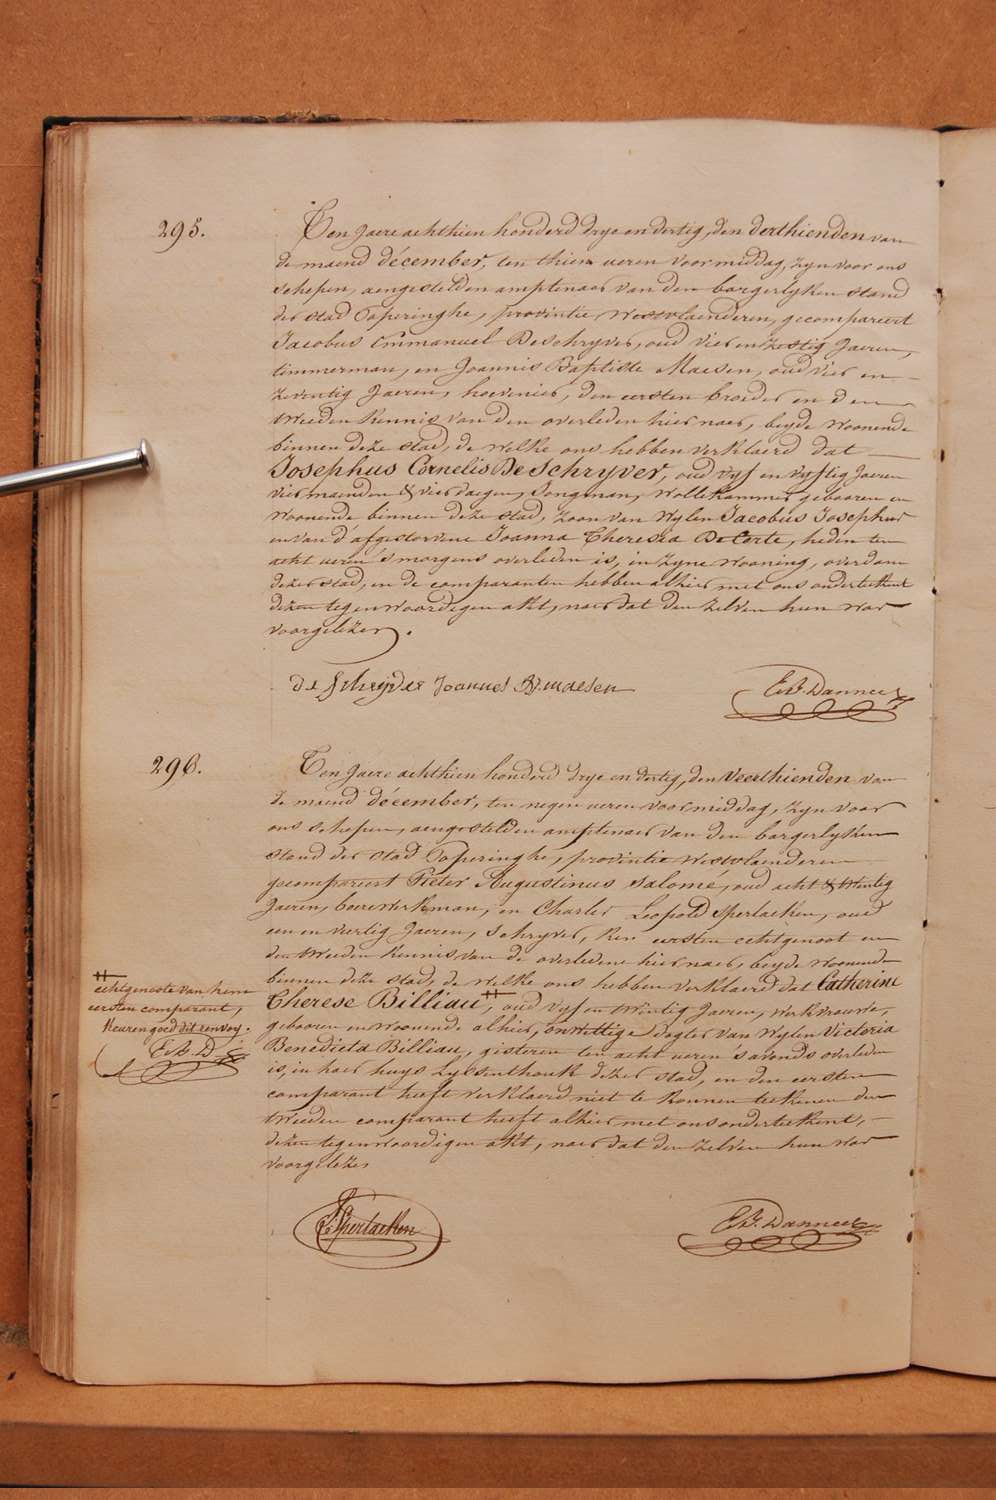 295.
Ten jaere achthien honderd drye en dertig, den derthienden van
de maend décember, ten thien ueren voormiddag, zyn voor ons
schepen, aengestelden amptenaer van den borgerlyken stand
der stad Poperinghe, provintie Westvlaenderen, gecompareert
Jacobus Emmanuel De Schryver, oud vier en zestig Jaeren,
timmerman, en Joannis Baptiste Maesen, oud vier en
zeventig Jaeren, hovenier, den eersten broeder en den
tweeden kennis van den overleden hier naer, beyde woonende
binnen deze stad, de welke ons hebben verklaerd dat
Josephus Cornelis De Schryver, oud vyf en vyftig Jaeren
vier maenden & vier daegen, Jongman, wollekammer, gebooren en
woonende binnen deze stad, zoon van wylen Jacobus Josephus
en van d'afgestorvene Joanna Theresia De Corte, heden ten
acht ueren 's morgens overleden is, in zyne wooning, overdam
dezer stad, en de comparanten hebben alhier met ons onderteekent
dezen tegenwoordigen akt, naer dat den zelven hun was
voorgelezen.
de Schryver Joannes B. maesen
E.B. Dannee
296.
Ten jaere achthien honderd drye en dertig, den veerthienden van
de maend décember, ten negen ueren voormiddag, zyn voor
ons schepen, aengestelden amptenaer van den borgerlyken
stand der stad Poperinghe, provintie Westvlaenderen
gecompareert Pieter Augustinus Salomé, oud acht & twintig
Jaeren, boerewerkman, en Charles Leopold Spertaelen, oud
een en veertig Jaeren, schryver, den eersten echtgenoot en
den tweeden kennis van de overledene hier naer, beyde woonende
binnen deze stad, de welke ons hebben verklaerd dat Catherine
Therese Billiau, oud vyf en twintig Jaeren, werkvrouwe,
gebooren en woonende alhier, onwettige dogter van wylen Victoria
Benedicta Billiau, gisteren ten acht ueren 's avonds overleden
is, in haer huys Lyssenthoek dezer stad, en den eersten
comparant heeft verklaerd niet te konnen teekenen den
tweeden comparant heeft alhier met ons onderteekent,
dezen tegenwoordigen akt, naer dat den zelven hun was
voorgelezen
echtgenoote van hem
eersten comparant,
keuren goed dit renvoy.
E.B. D
E.B. Dannee